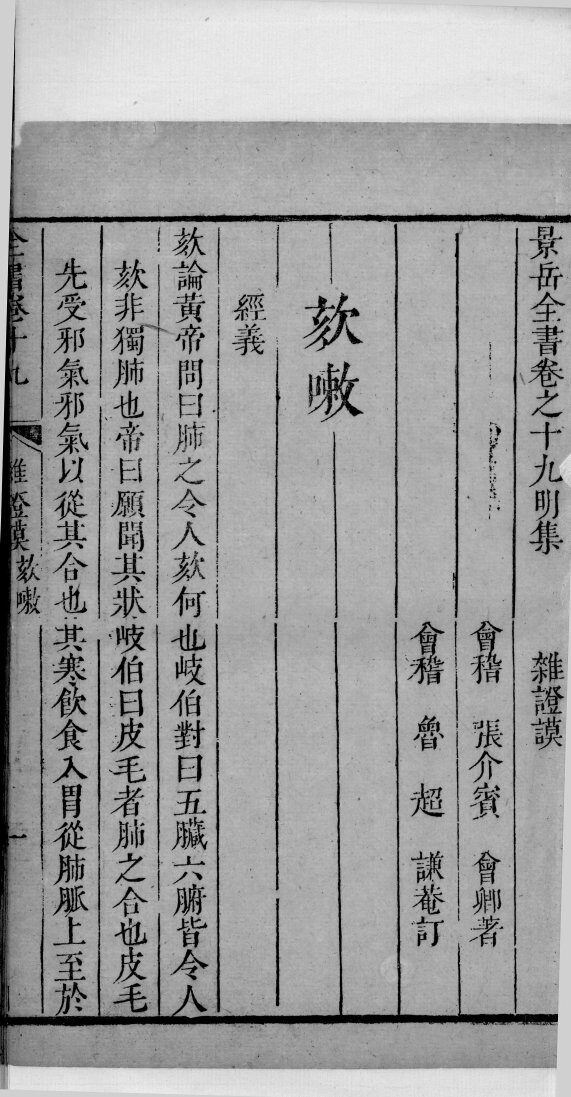 景岳全書卷之十九明集　雜證謨
會稽　張介賓　會卿著
會稽　魯　超　謙菴訂
欬嗽
經義
欬論黃帝問曰肺之令人欬何也岐伯對曰五臟六腑皆令人
欬非獨肺也帝曰願聞其狀岐伯曰皮毛者肺之合也皮毛
先受邪氣邪氣以從其合也其寒飲食入胃從肺脈上至於
全書卷十九　雜證謨　欬嗽　一